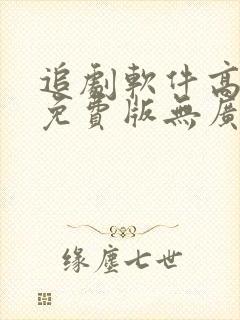 追劇軟件高
免費版無廣
缘塵七世